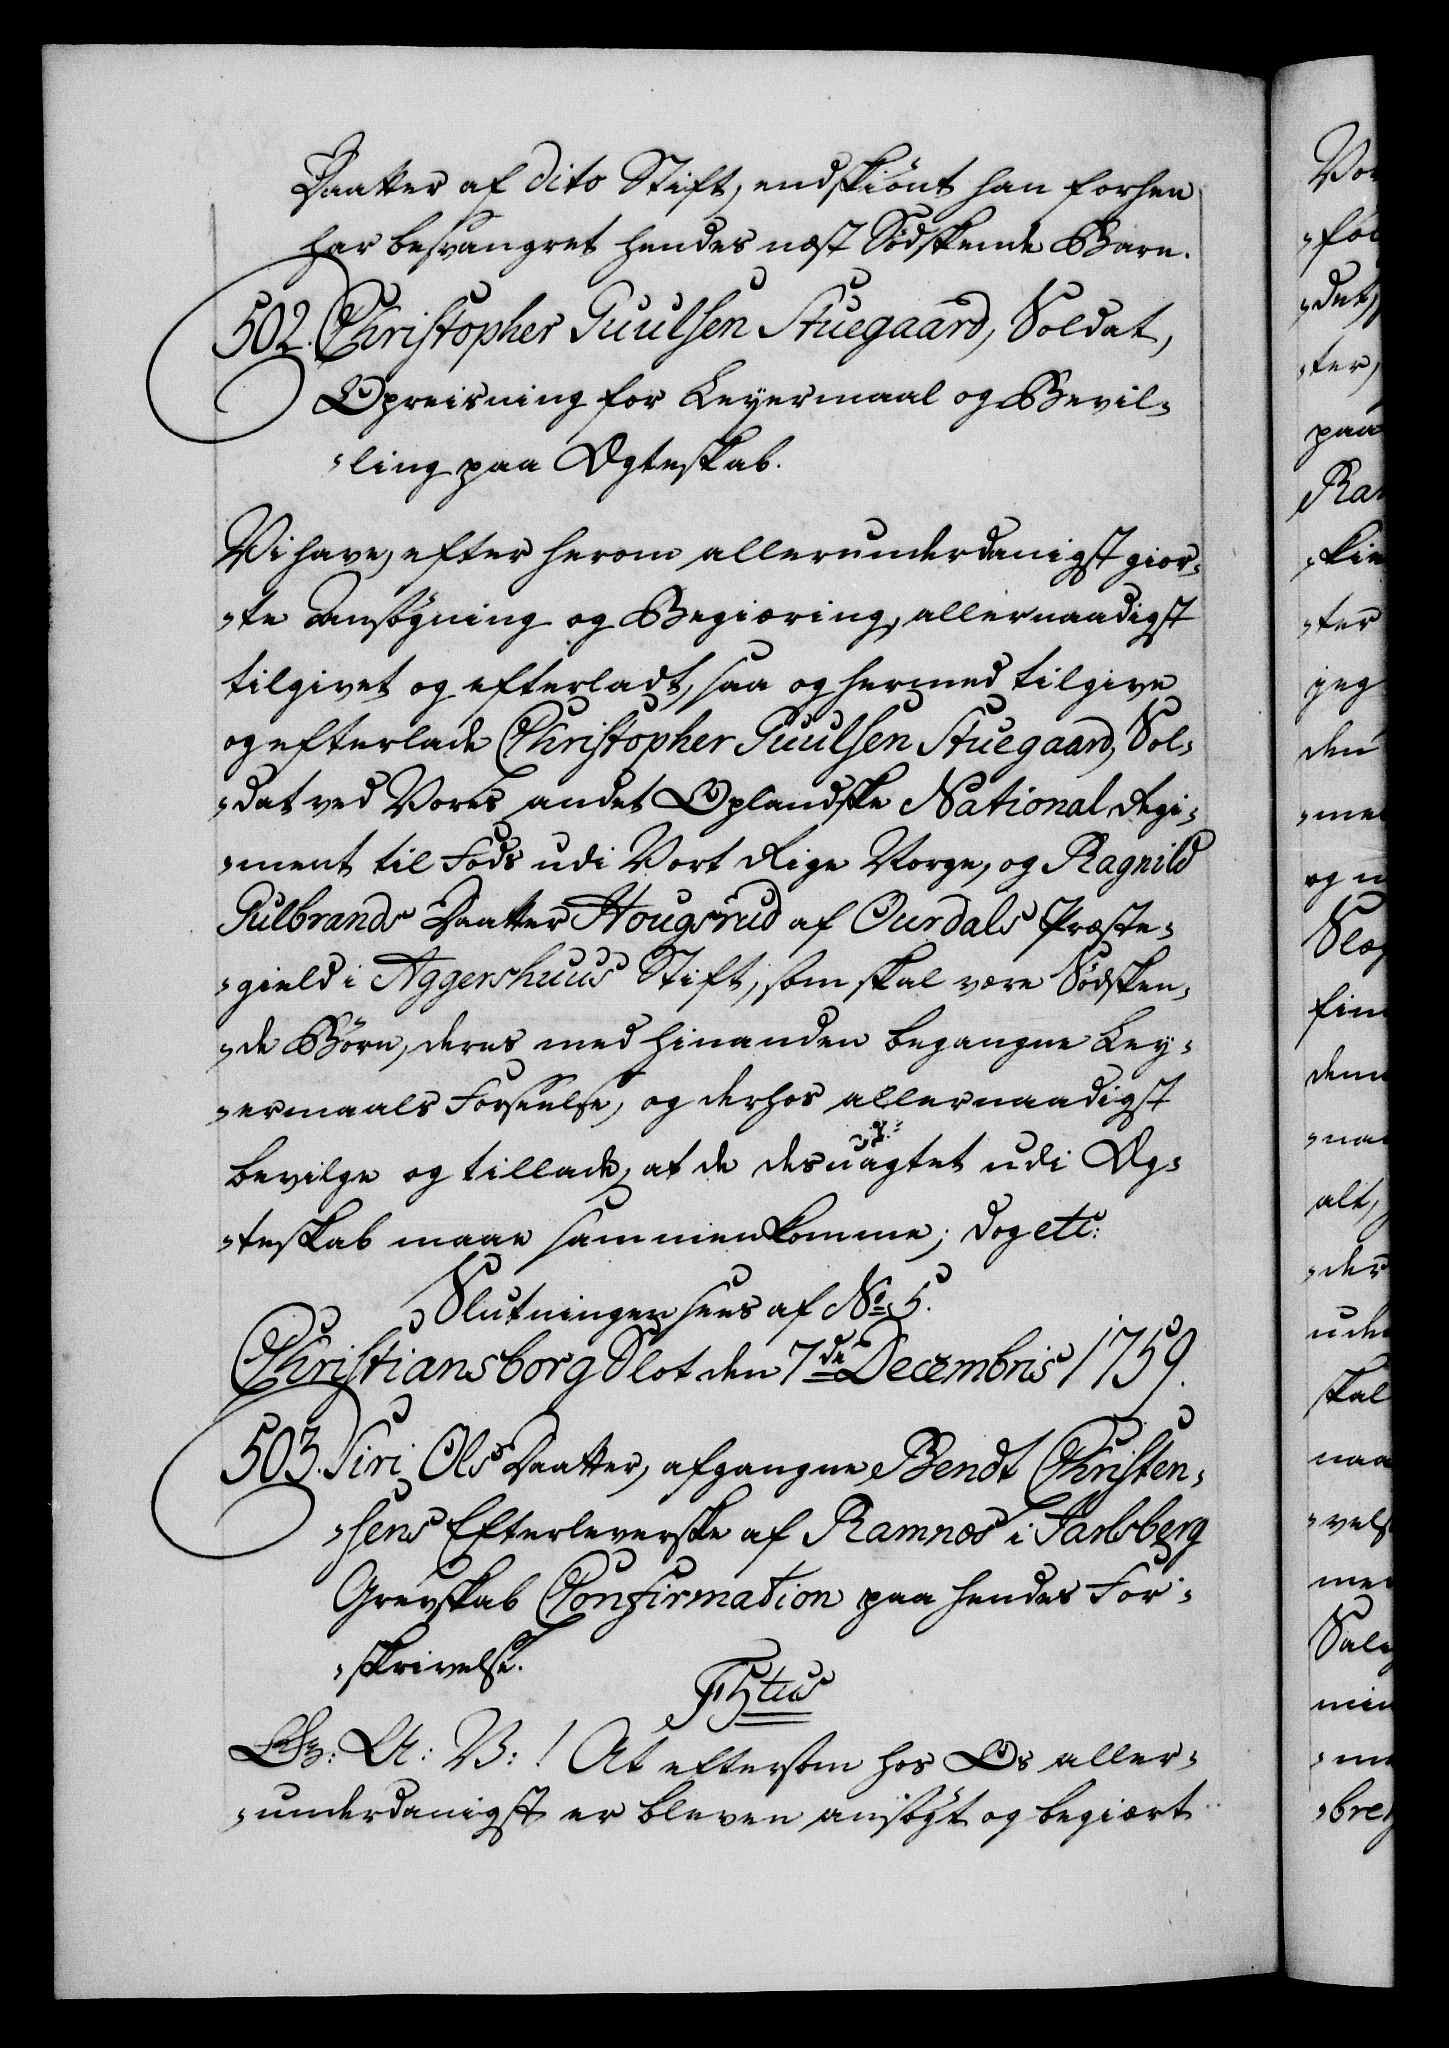 Daatter af dito Stift, endskiönt han forhen
har besvangret hendes næst Södskende Barn.
502. Christopher Guulsen Stuegaard, Soldat,
Opreisning for Leyermaal og Bevil-
-ling paa Ægteskab.
Vi have, efter herom allerunderdanigst gior-
-te Ansögning og Begiæring, allernaadigst
tilgivet og efterladt, saa og hermed tilgive
og efterlade Christopher Guulsen Stuegaard, Sol-
-dat ved Vores andet Oplandske National Regi-
-ment til Fods udi Vort Rige Norge, og Ragnild
Gulbrands Daatter Hougsrud af Ourdals Præste-
-gield i Aggershuus Stift, som skal være Södsken-
-de Börn, deres med hinanden begangne Ley-
-ermaals Forseelse, og derhos allernaadigst
bevilge og tillade, at de desuagtet udi Æg-
-teskab maae sammenkomme; dog etc:
Slutningen sees af No. 5.
Christiansborg Slot den 7de Decembris 1759.
503. Siri Ols Daatter, afgangne Bendt Christen-
-sens Efterleverske af Ramnes i Jarlsberg
Grevskab Confirmation paa hendes For-
-skrivelse.
F5tus
G: A: V:! At eftersom hos Os aller-
-underdanigst er bleven ansögt og begiært
Vor
-for
-det,
-ter,
paa
Ran
-kie
-ter
jeg
den
-me
og
Slæg
fin
dem
-na
alt,
-der
ude
skal
naa
-vels
me
Sal
min
-m
-bre